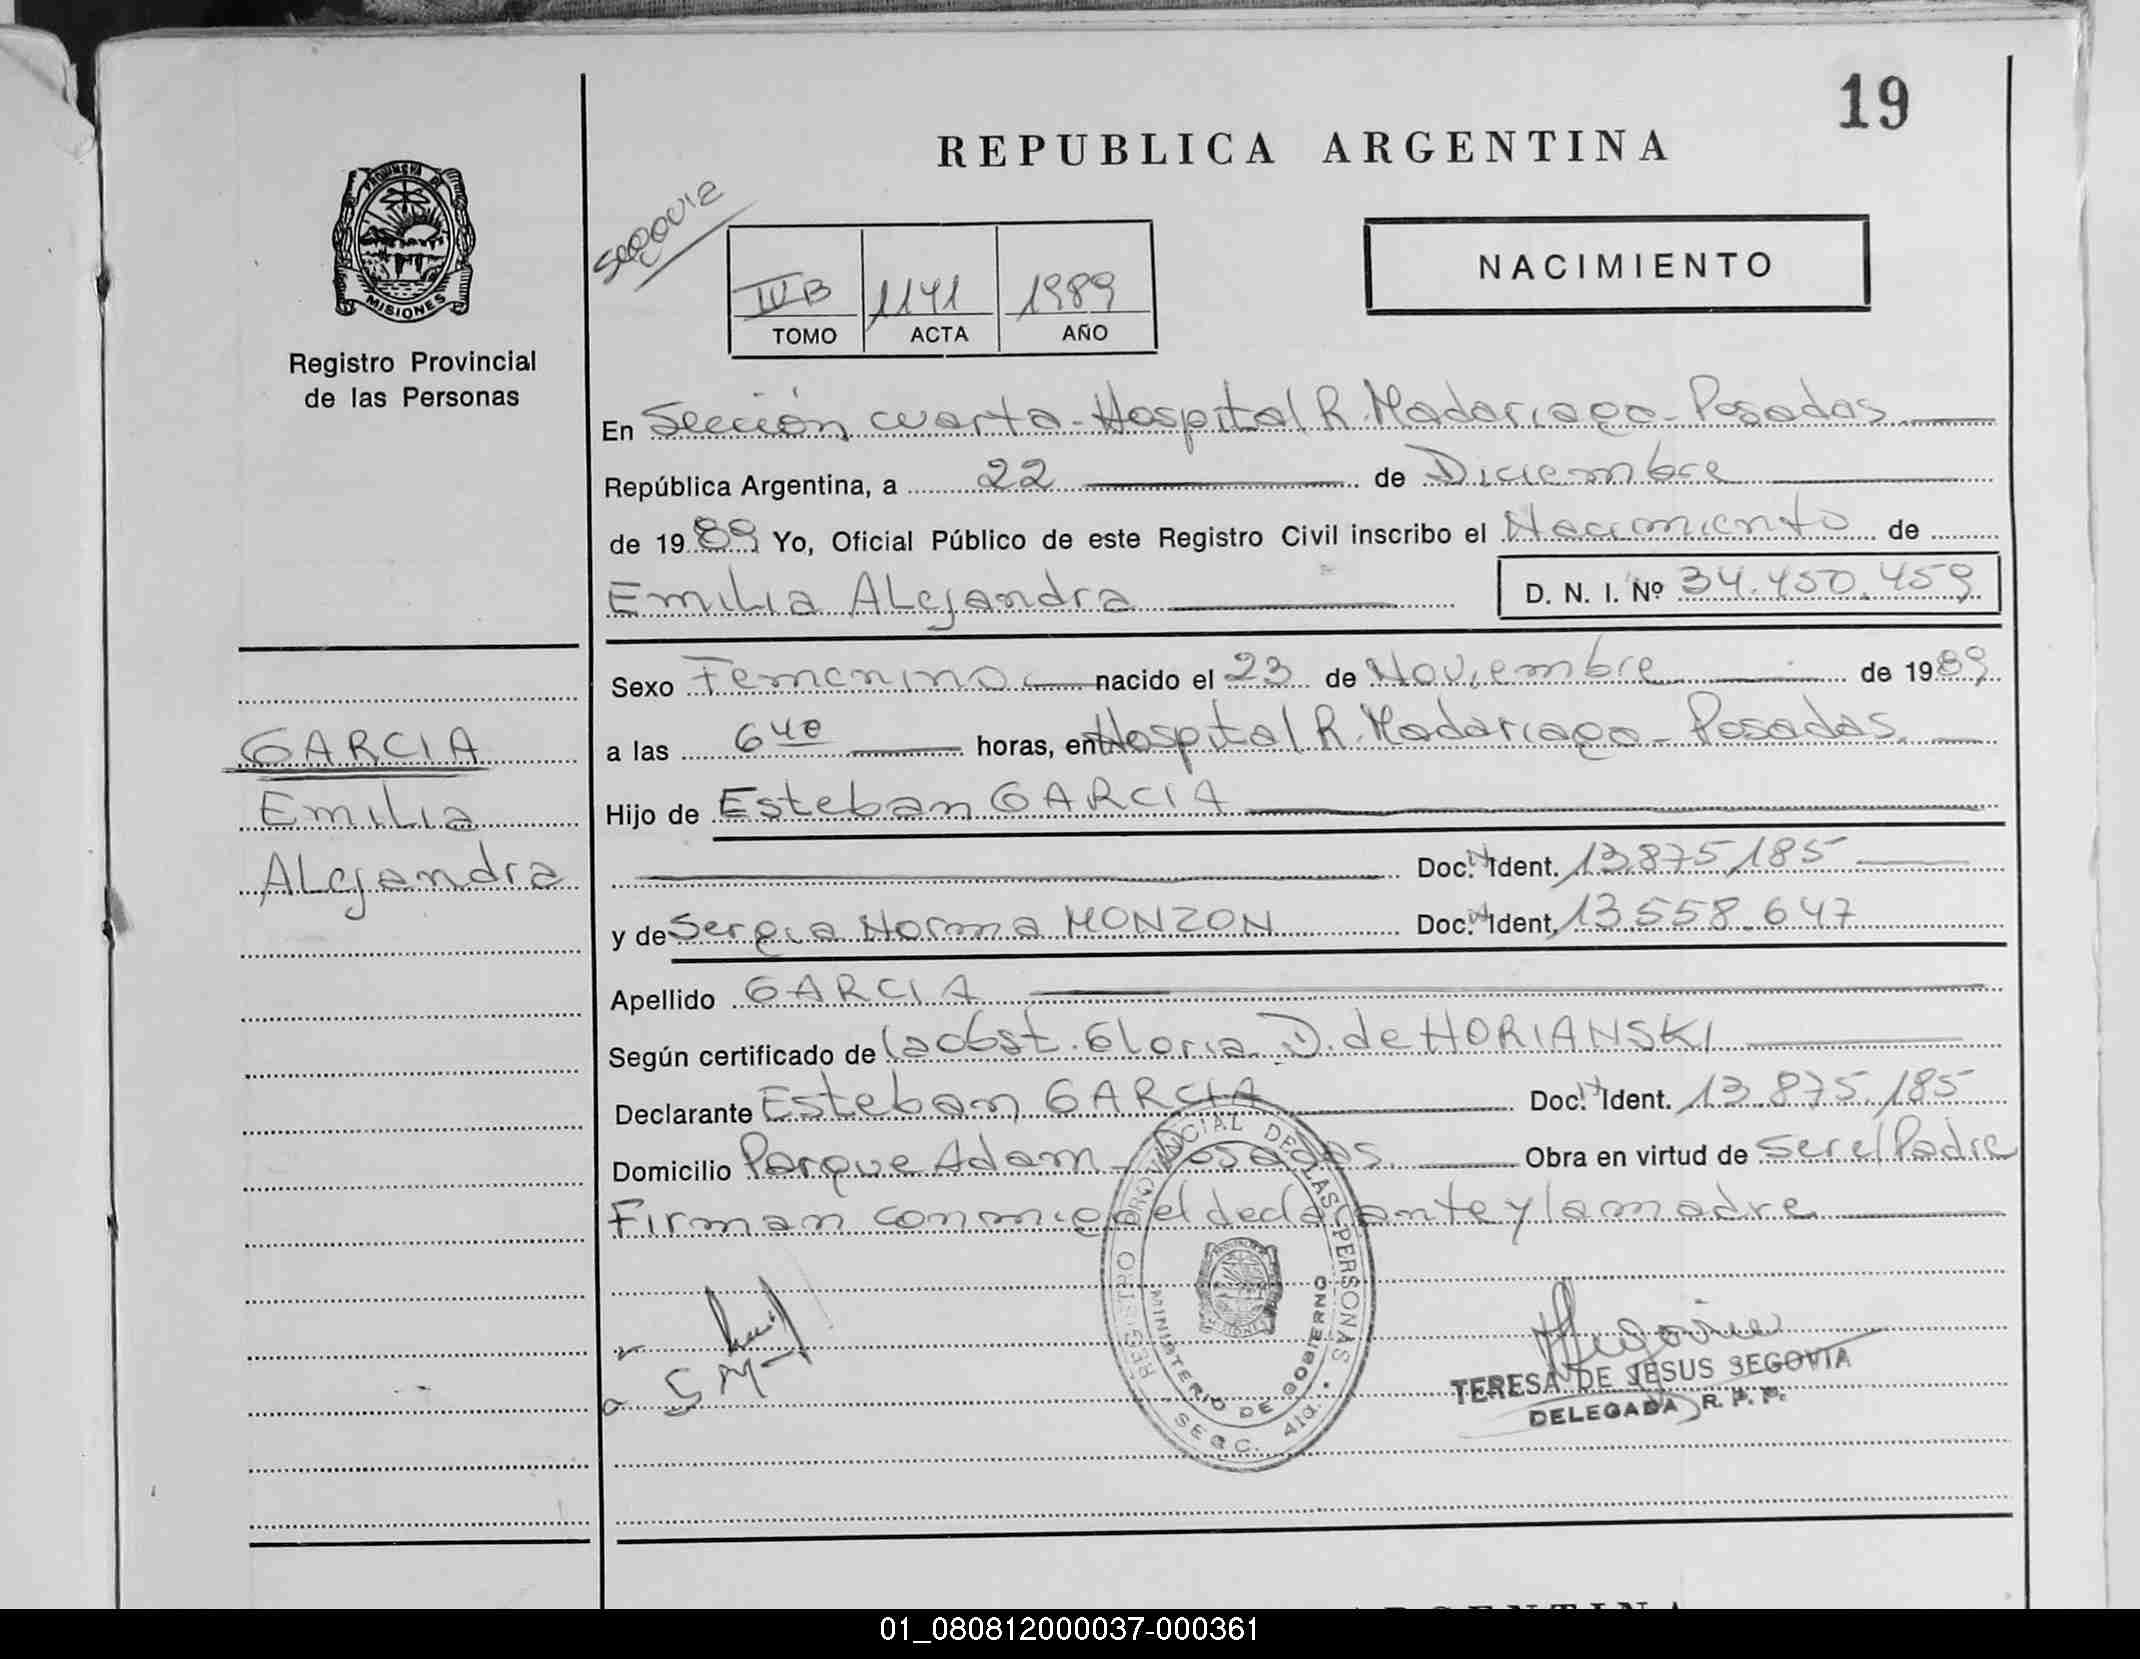 19
REPUBLICA ARGENTINA
Segovia
PROVINCIA DE
MISIONES
Registro Provincial
de las Personas
IV B 1141 1989
TOMO ACTA AÑO
NACIMIENTO
En Sección cuarta - Hospital R. Madariaga - Posadas
República Argentina, a 22 de Diciembre
de 1989 Yo, Oficial Público de este Registro Civil inscribo el Nacimiento de
Emilia Alejandra D. N. I. Nº 34.450.459
Sexo Femenino nacido el 23 de Noviembre de 1989
a las 640 horas, en Hospital R. Madariaga - Posadas
Hijo de Esteban GARCIA
Doc. N Ident. 13.875.185
y de Sergia Norma MONZON Doc. N Ident. 13.558.647
Apellido GARCIA
Según certificado de la Obst. Gloria D. de HORIANSKI
Declarante Esteban GARCIA Doc. N Ident. 13.875.185
Domicilio Parque Adam - Posadas Obra en virtud de ser el Padre
Firman conmigo el declarante y la madre
GARCIA
Emilia
Alejandra
S M
REGISTRO PROVINCIAL DE LAS PERSONAS
MINISTERIO DE GOBIERNO
SECC. 4ta.
Segovia
TERESA DE JESUS SEGOVIA
DELEGADA R. P. P.
ARGENTINA
01_080812000037-000361